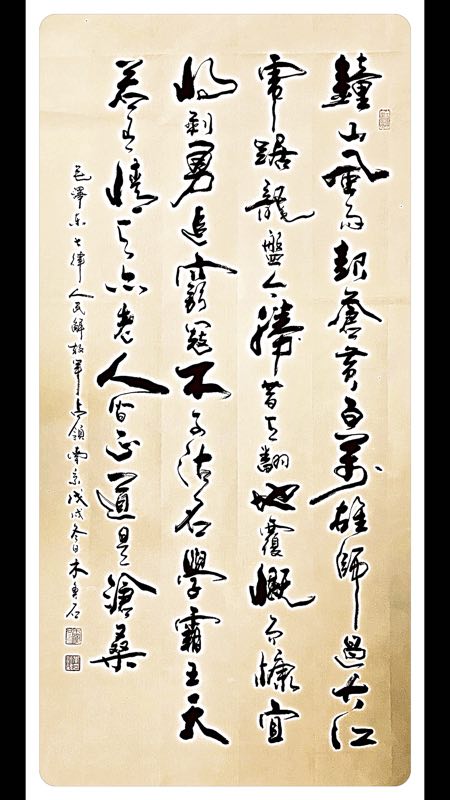 鐘山風雨起蒼黃百萬雄師過大江
虎踞龍盤今勝昔天翻地覆慨而慷宜
將剩勇追窮寇不可沽名學霸王天
若有情天亦老人間正道是滄桑
毛澤東七律人民解放軍占領南京戊戌冬日木石